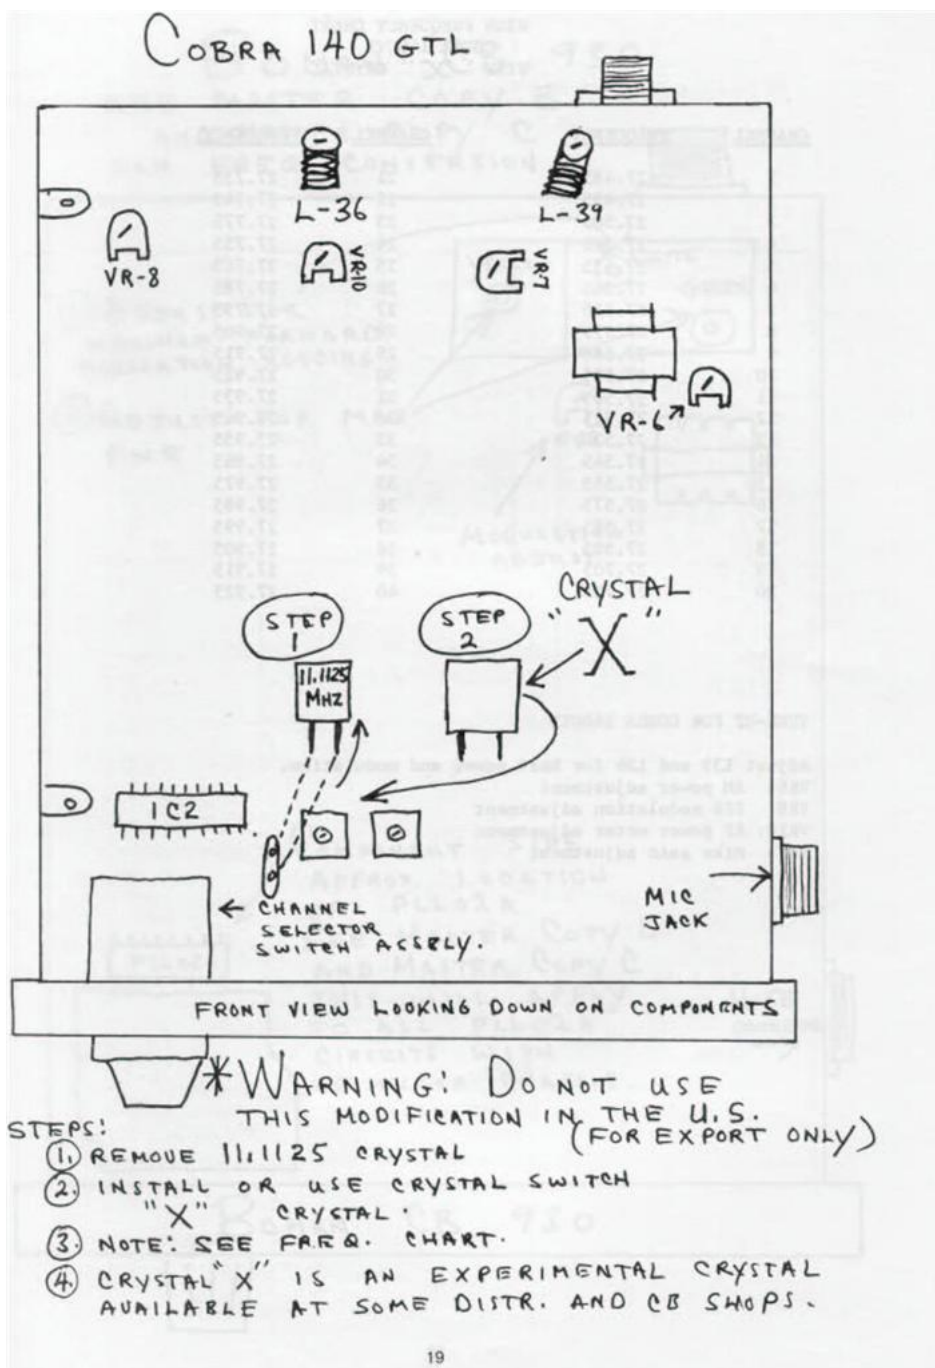 COBRA 140 GTL
L-36
L-39
VR-8
VR-10
VR-7
VR-6
STEP 1
STEP 2
CRYSTAL
"X"
11.1125
MHZ
IC2
CHANNEL
SELECTOR
SWITCH ASSBLY.
MIC
JACK
FRONT VIEW LOOKING DOWN ON COMPONENTS
*WARNING: DO NOT USE
THIS MODIFICATION IN THE U.S.
(FOR EXPORT ONLY)
STEPS:
1. REMOVE 11.1125 CRYSTAL
2. INSTALL OR USE CRYSTAL SWITCH
"X" CRYSTAL.
3. NOTE: SEE FREQ. CHART.
4. CRYSTAL "X" IS AN EXPERIMENTAL CRYSTAL
AVAILABLE AT SOME DISTR. AND CB SHOPS.
19